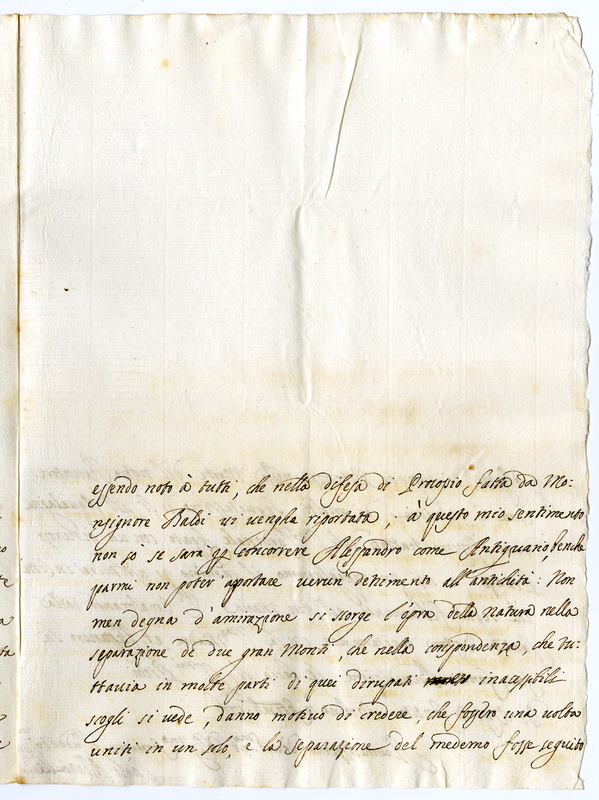 essendo noto à tutti, che nella difesa di Procopio fatta da Mo:
nsignore Baldi vi vengha riportata, à questo mio sentimento
non sò se sarà per concorrere Alessandro come Antiquario, benche
parmi non poter apportare verun detrimento all'antichità: Non
men degna d'amirazione si scorge l'opra della natura nella
separazione de due gran Monti, che nella corispondenza, che tu:
ttavia in molte parti di quei dirupati inacessibili
scogli si vede, danno motivo di credere, che fossero una volta
uniti in un solo, e la separazione del medemo fosse seguito